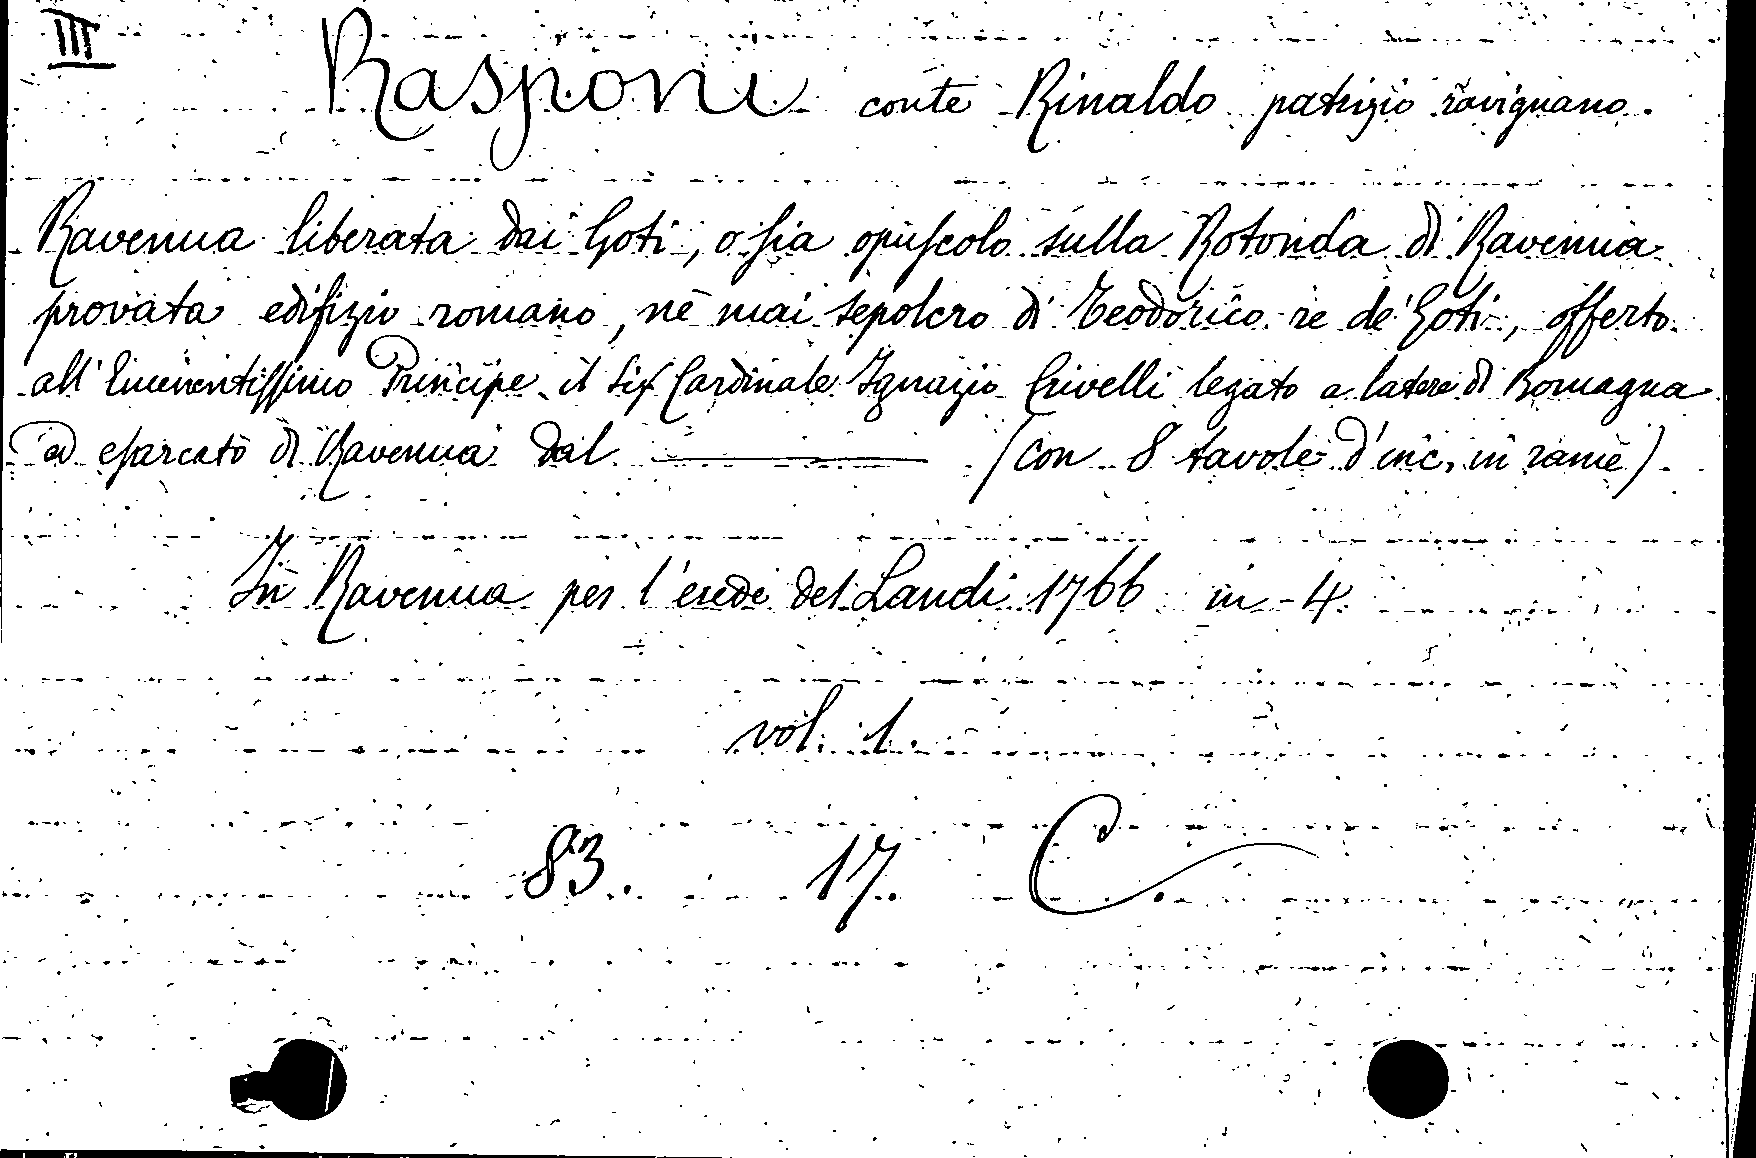 III
Rasponi conte Rinaldo patrizio ravignano.
Ravenna liberata dai Goti, o sia opuscolo sulla Rotonda di Ravenna
provata edifizio romano, nè mai sepolcro di Teodorico re de' Goti, offerto
all'Eminentissimo Principe il Sig. Cardinale Ignazio Crivelli legato a latere di Romagna
ed esarcato di Ravenna dal ——— (con 8 tavole d'inc. in rame).
In Ravenna per l'erede del Landi 1766 in-4
vol. 1.
83. 17. C.